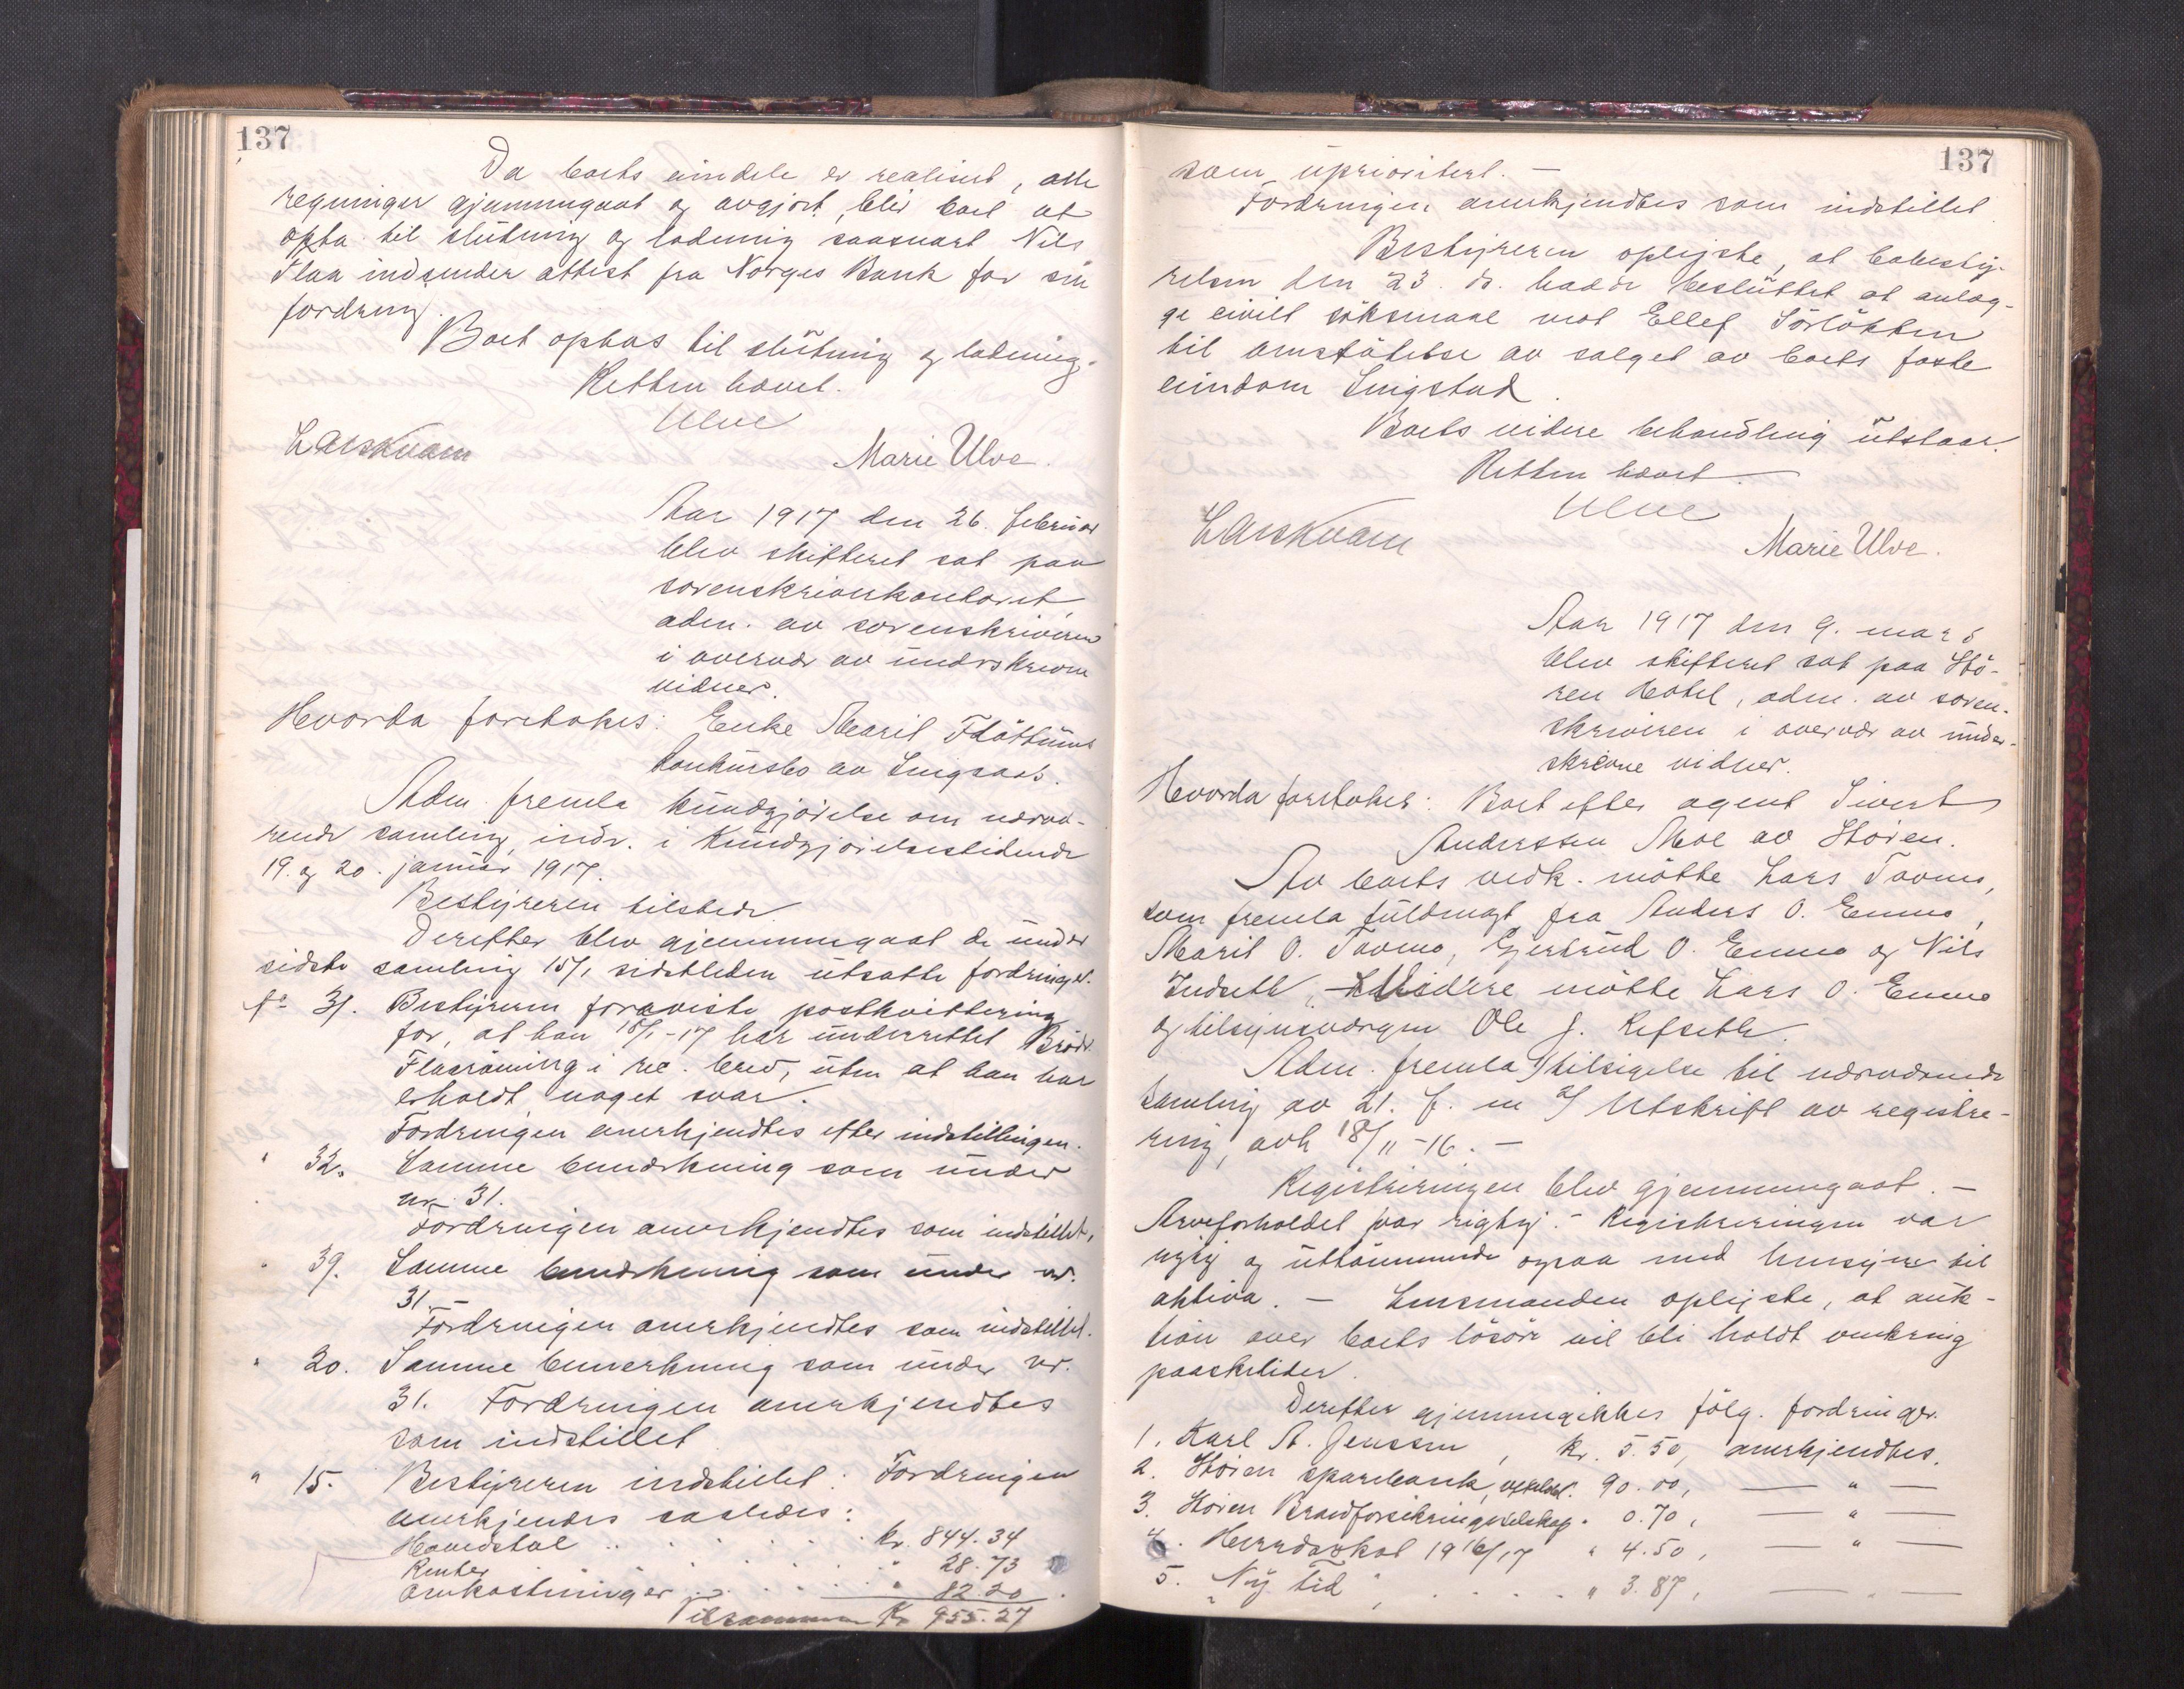 137
Da boets eiendele er realisert, alle
regninger gjennemgaat og avgjort, blir boet at
opta til slutning og lodning saasnart Nils
Flaa indsender attest fra Norges Bank for sin
fordring.
Boet optas til slutning og lodning.
Retten hævet.
Ulve
L Aarskvam
Marie Ulve.
Aar 1917 den 26. februar
blev skifteret sat paa
sorenskriverkontoret,
adm. av sorenskriveren
i overvær av underskrevne
vidner.
Hvorda foretokes: Enke Marit Fløttums
konkursbo av Singsaas.
Adm. fremla kundgjørelse om nærvæ-
rende samling, indr. i Kundgjørelsestidende
19. og 20. januar 1917.
Bestyreren tilstede.
Derefter blev gjennemgaat de under
sidste samling 15/1 sidstleden utsatte fordringer.
No 31. Bestyreren foreviste postkvittering
for, at han 18/1-17 har underrettet Brødr.
Flaarønning i rec. brev, uten at han har
erholdt noget svar.
Fordringen anerkjendtes efter indstillingen.
" 32. Samme bemerkning som under
nr. 31.
Fordringen anerkjendtes som indstillet.
" 39. Samme bemerkning som under nr.
31. -
Fordringen anerkjendtes som indstillet.
" 20. Samme bemerkning som under nr.
31. Fordringen anerkjendtes
som indstillet.
" 15. Bestyreren indstillet: Fordringen
anerkjendes saaledes:
Hovedstol . . . . . . kr. 844.34
Renter . . . . . . " 28.73
Omkostninger . . . . . " 82.20
Tilsammen Kr. 955.27
137
som uprioritert. -
Fordringen anerkjendtes som indstillet.
Bestyreren oplyste, at bobesty-
relsen den 23. ds. hadde besluttet at anlæg-
ge civilt søksmaal mot Ellef Sørløkken
til omstøtelse av salget av boets faste
eiendom Singstad.
Boets videre behandling utstaar.
Retten hævet.
Ulve
L Aarskvam
Marie Ulve.
Aar 1917 den 9. mars
blev skifteret sat paa Stø-
ren hotel, adm. av soren-
skriveren i overvær av under-
skrevne vidner.
Hvorda foretokes: Boet efter agent Sivert
Anderssen Moe av Støren.
Av boets vedk. møtte Lars Tovmo,
som fremla fuldmagt fra Anders O. Enmo,
Marit O. Tovmo, Gjertrud O. Enmo og Nils
Indseth, Videre møtte Lars O. Enmo
og tilsynsværgen Ole J. Refseth.
Adm. fremla 1) tilsigelse til nærværende
samling av 21. f. m. 2) Utskrift av registre-
ring, avh. 18/11-16. -
Registreringen blev gjennemgaat. -
Arveforholdet var rigtig. - Registreringen var
rigtig og uttømmende ogsaa med hensyn til
aktiva. - Lensmanden oplyste, at auk-
tion over boets løsøre vil bli holdt omkring
paasketider.
Derefter gjennemgikkes følg. fordringer.
1. Karl A. Jenssen, kr. 5.50, anerkjendtes.
2. Støren sparebank, 90.00, — " —
3. Støren Brandforsikringsselskap " 0.70, — " —
4. Herredsskat 1916/17 " 4.50, — " —
5. Ny Tid, . . . . " 3.87, — " —